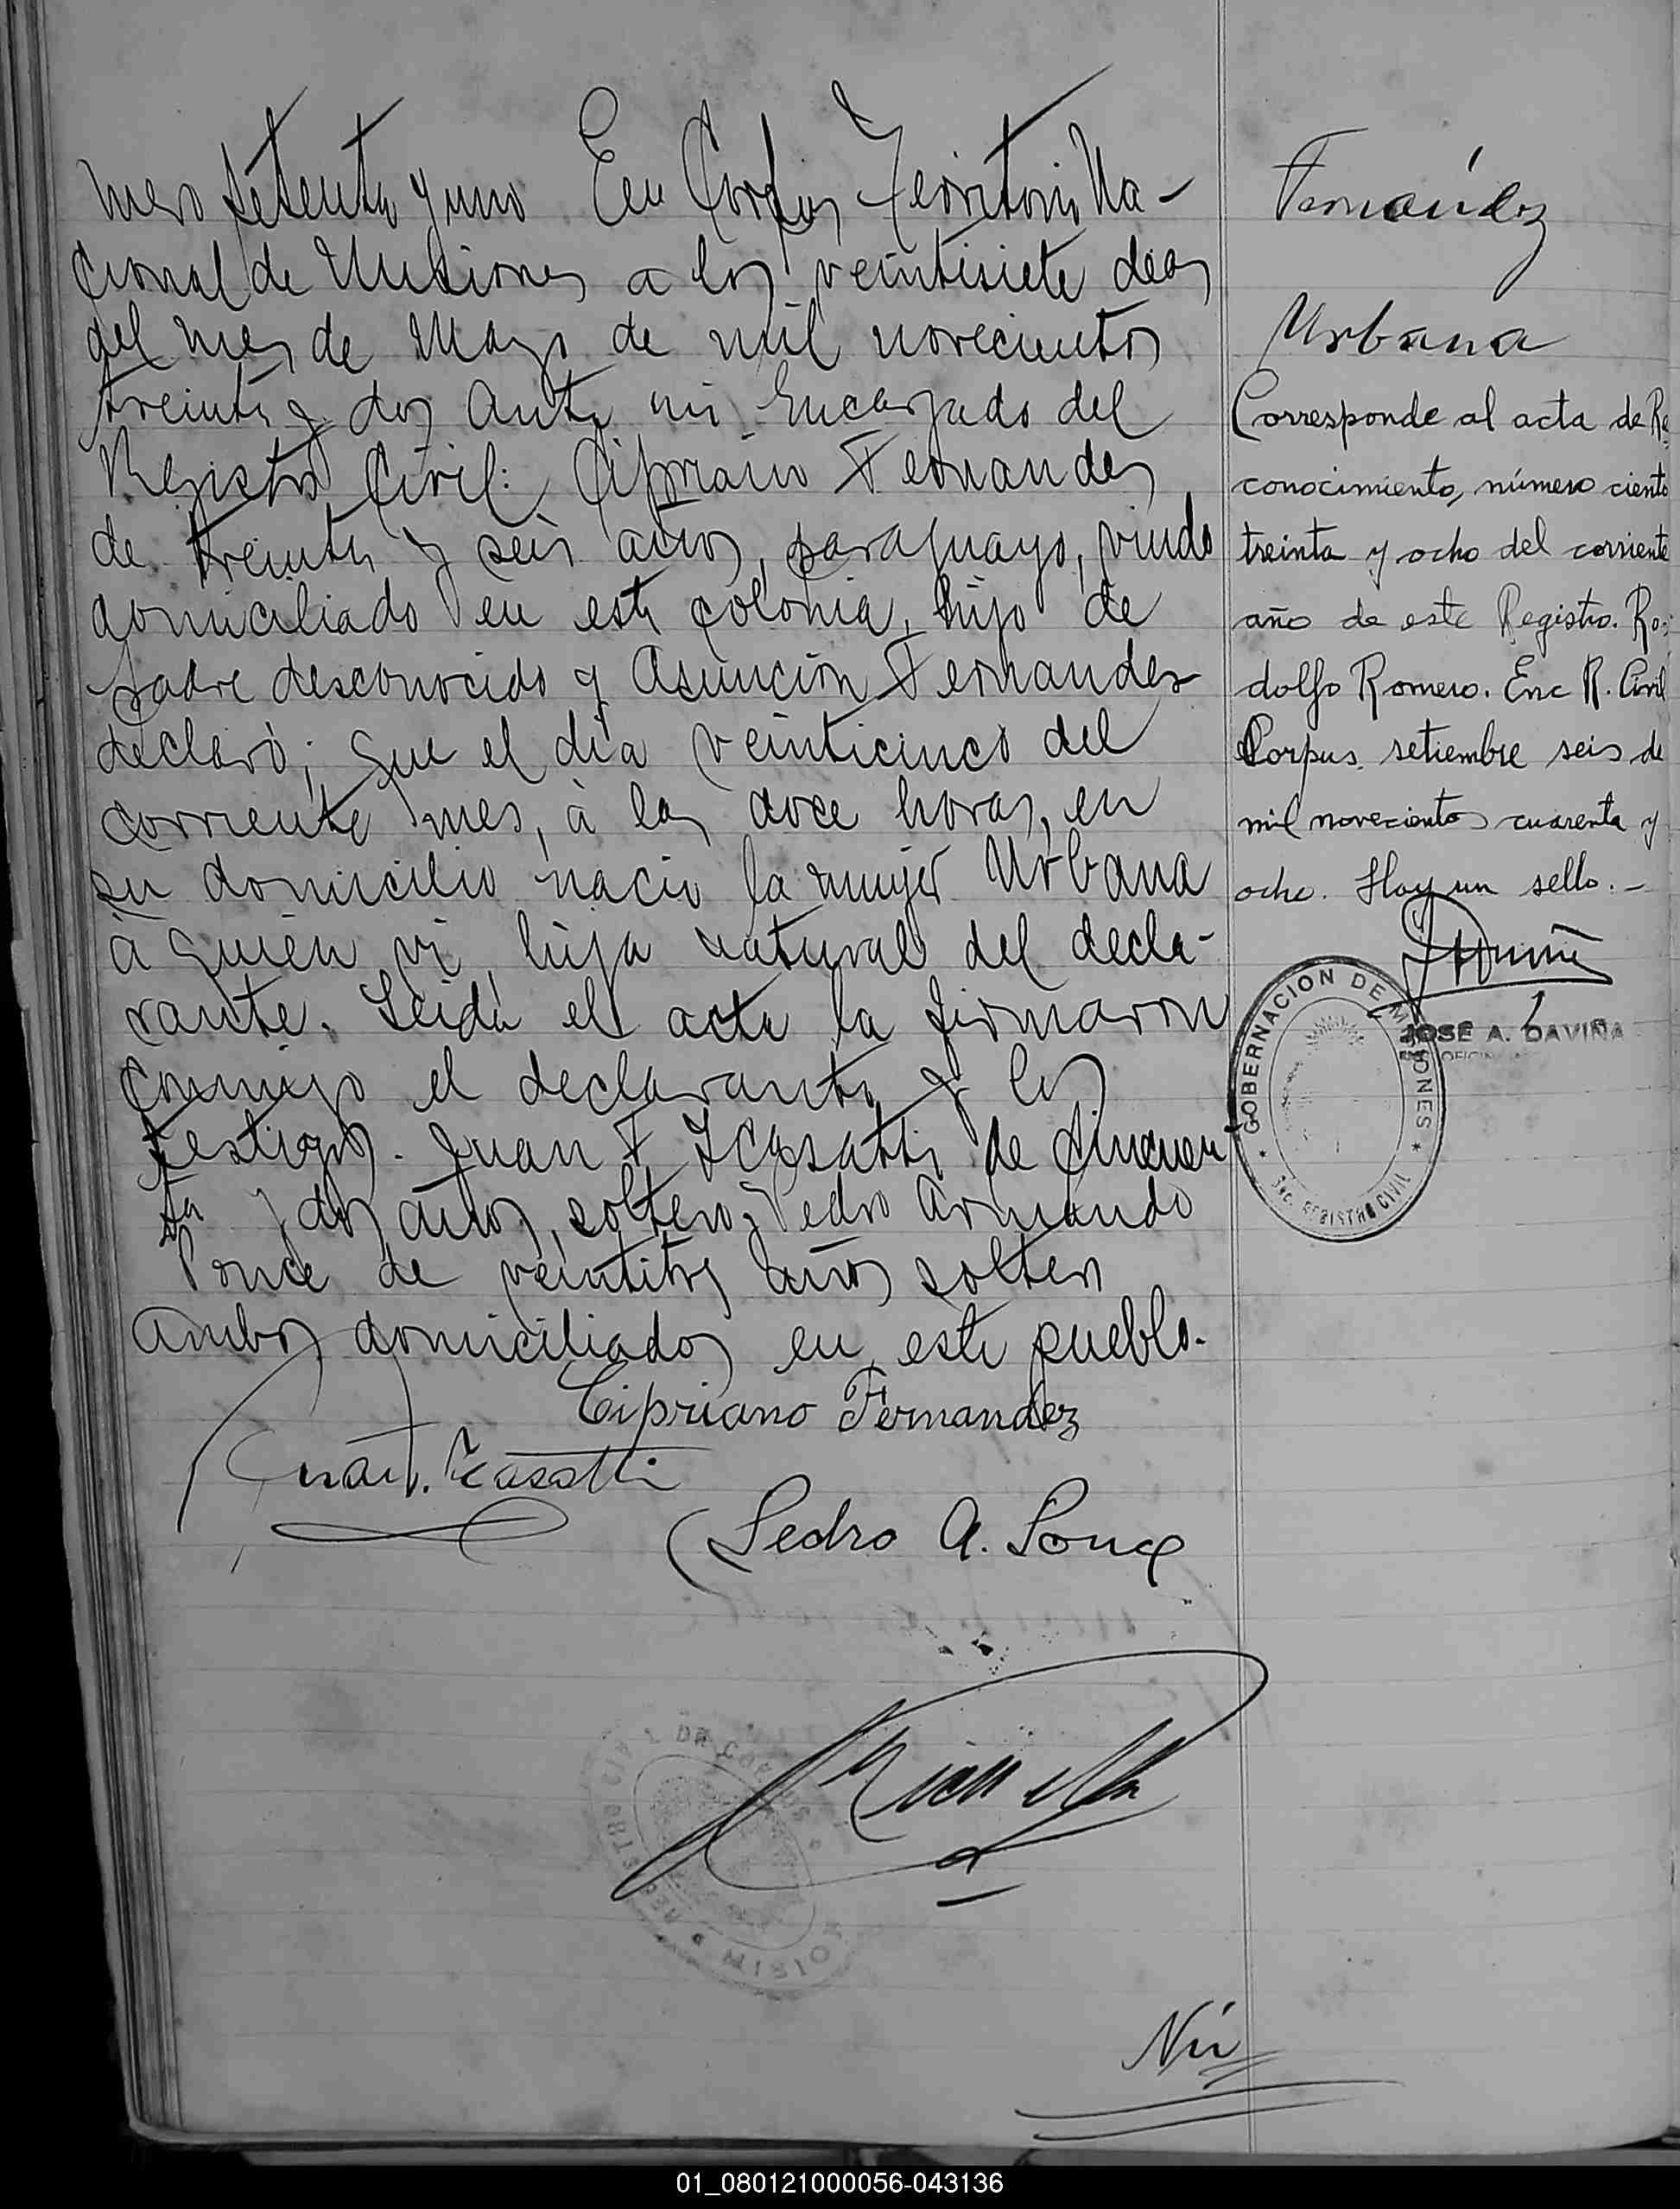 mero setenta y uno En Corpus Territorio Na-
cional de Misiones a los veintisiete dias
del mes de Mayo de mil novecientos
treinta y dos Ante mi Encargado del
Registro Civil: Cipriano Fernandez
de treinta y seis años, paraguayo, viudo
domiciliado en esta colonia, hijo de
padre desconocido y Asunción Fernandez
declaró; que el día veinticinco del
corriente mes, à las doce horas, en
su domicilio nació la mujer Urbana
à quien vi, hija natural del decla-
rante. Leida el acta la firmaron
conmigo el declarante y los
testigos. Juan F Icasatti de cincuen
ta y dos años, soltero, Pedro Armando
Ponce de veintitres años soltero
ambos domiciliados en este pueblo.
Cipriano Fernandez
Juan F. Icasatti
Pedro A. Ponce
Fernández
Urbana
Corresponde al acta de Re
conocimiento, número ciento
treinta y ocho del corriente
año de este Registro. Ro-
dolfo Romero. Enc R. Civil
Corpus setiembre seis de
mil novecientos cuarenta y
ocho. Hay un sello.-
GOBERNACION DE MISIONES
SEC. REGISTRO CIVIL
JOSE A. DAVIÑA
REGISTRO CIVIL DE CORPUS
MISIONES
Nú
01_080121000056-043136